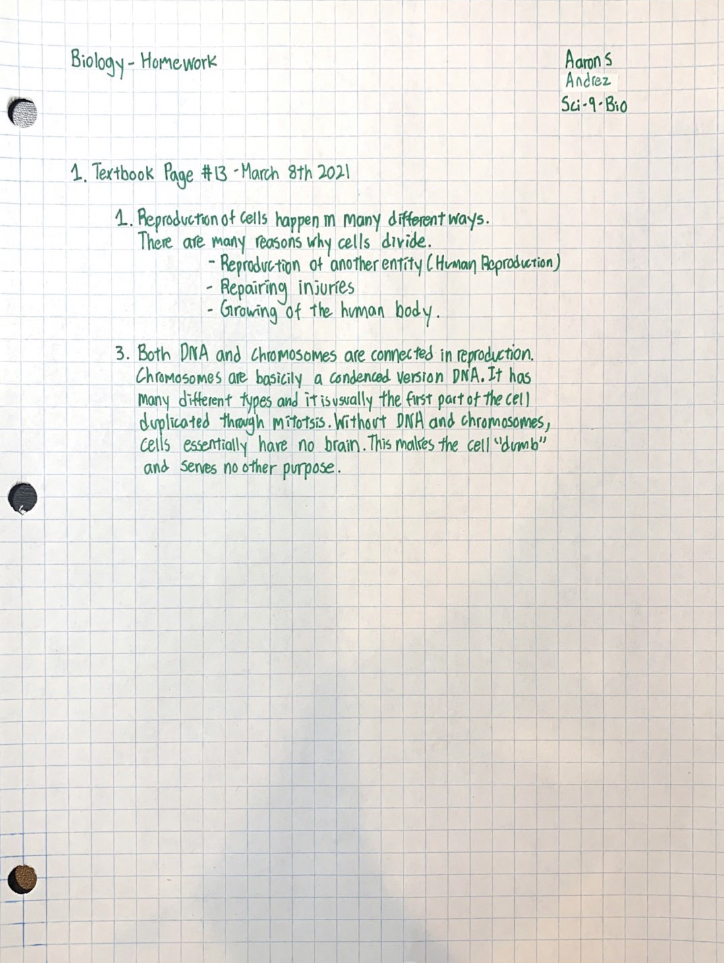 Biology - Homework
Aaron S
Andrez
Sci-9-Bio
1. Textbook Page #13 - March 8th 2021
1. Reproduction of cells happen in many different ways.
There are many reasons why cells divide.
- Reproduction of another entity (Human Reproduction)
- Repairing injuries
- Growing of the human body.
3. Both DNA and Chromosomes are connected in reproduction.
Chromosomes are basicily a condenced version DNA. It has
many different types and it is usually the first part of the cell
duplicated through mitotsis. Without DNA and chromosomes,
cells essentially have no brain. This makes the cell "dumb"
and serves no other purpose.